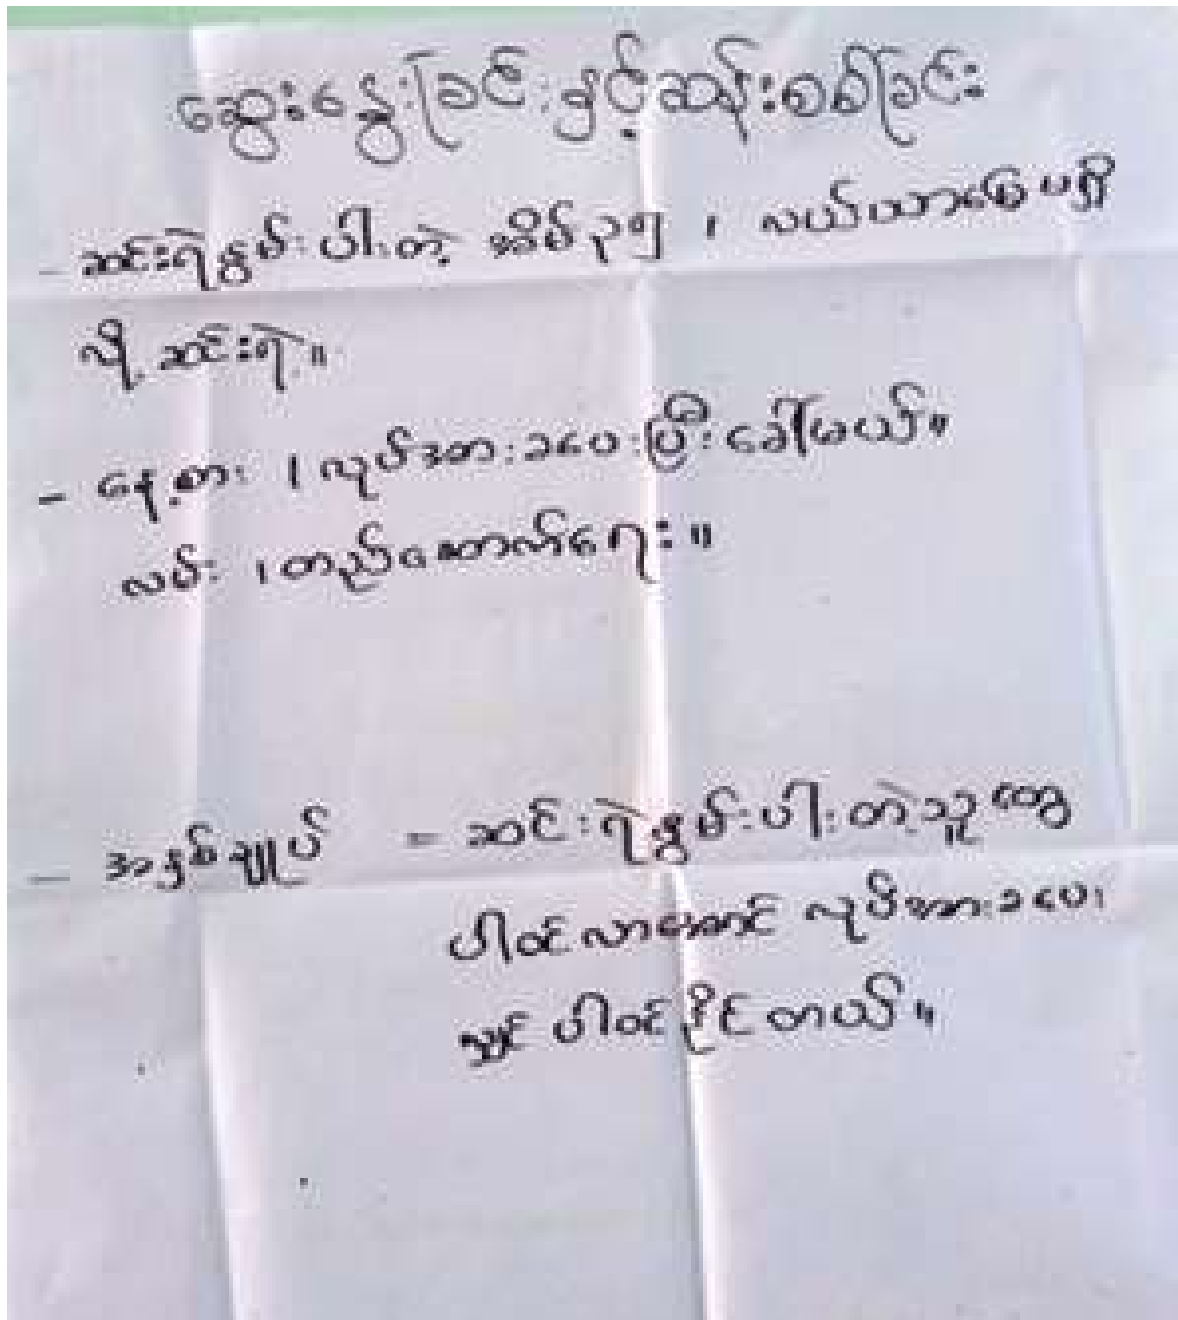 ဆွေးနွေးခြင်းနှင့်ဆန်းစစ်ခြင်း
- ဆင်းရဲနွမ်းပါးတဲ့ အိမ် ၃၅ ၊ လယ်ယာမြေမရှိ
လို့ ဆင်းရဲ။
- နေ့စား ၊ လုပ်အားခပေးပြီး ခေါ်မယ်။
လမ်း ၊ တည်ဆောက်ရေး။
- အနှစ်ချုပ် - ဆင်းရဲနွမ်းပါးတဲ့သူတွေ
ပါဝင်လာအောင် လုပ်အားခပေး
လျှင် ပါဝင်နိုင်တယ်။